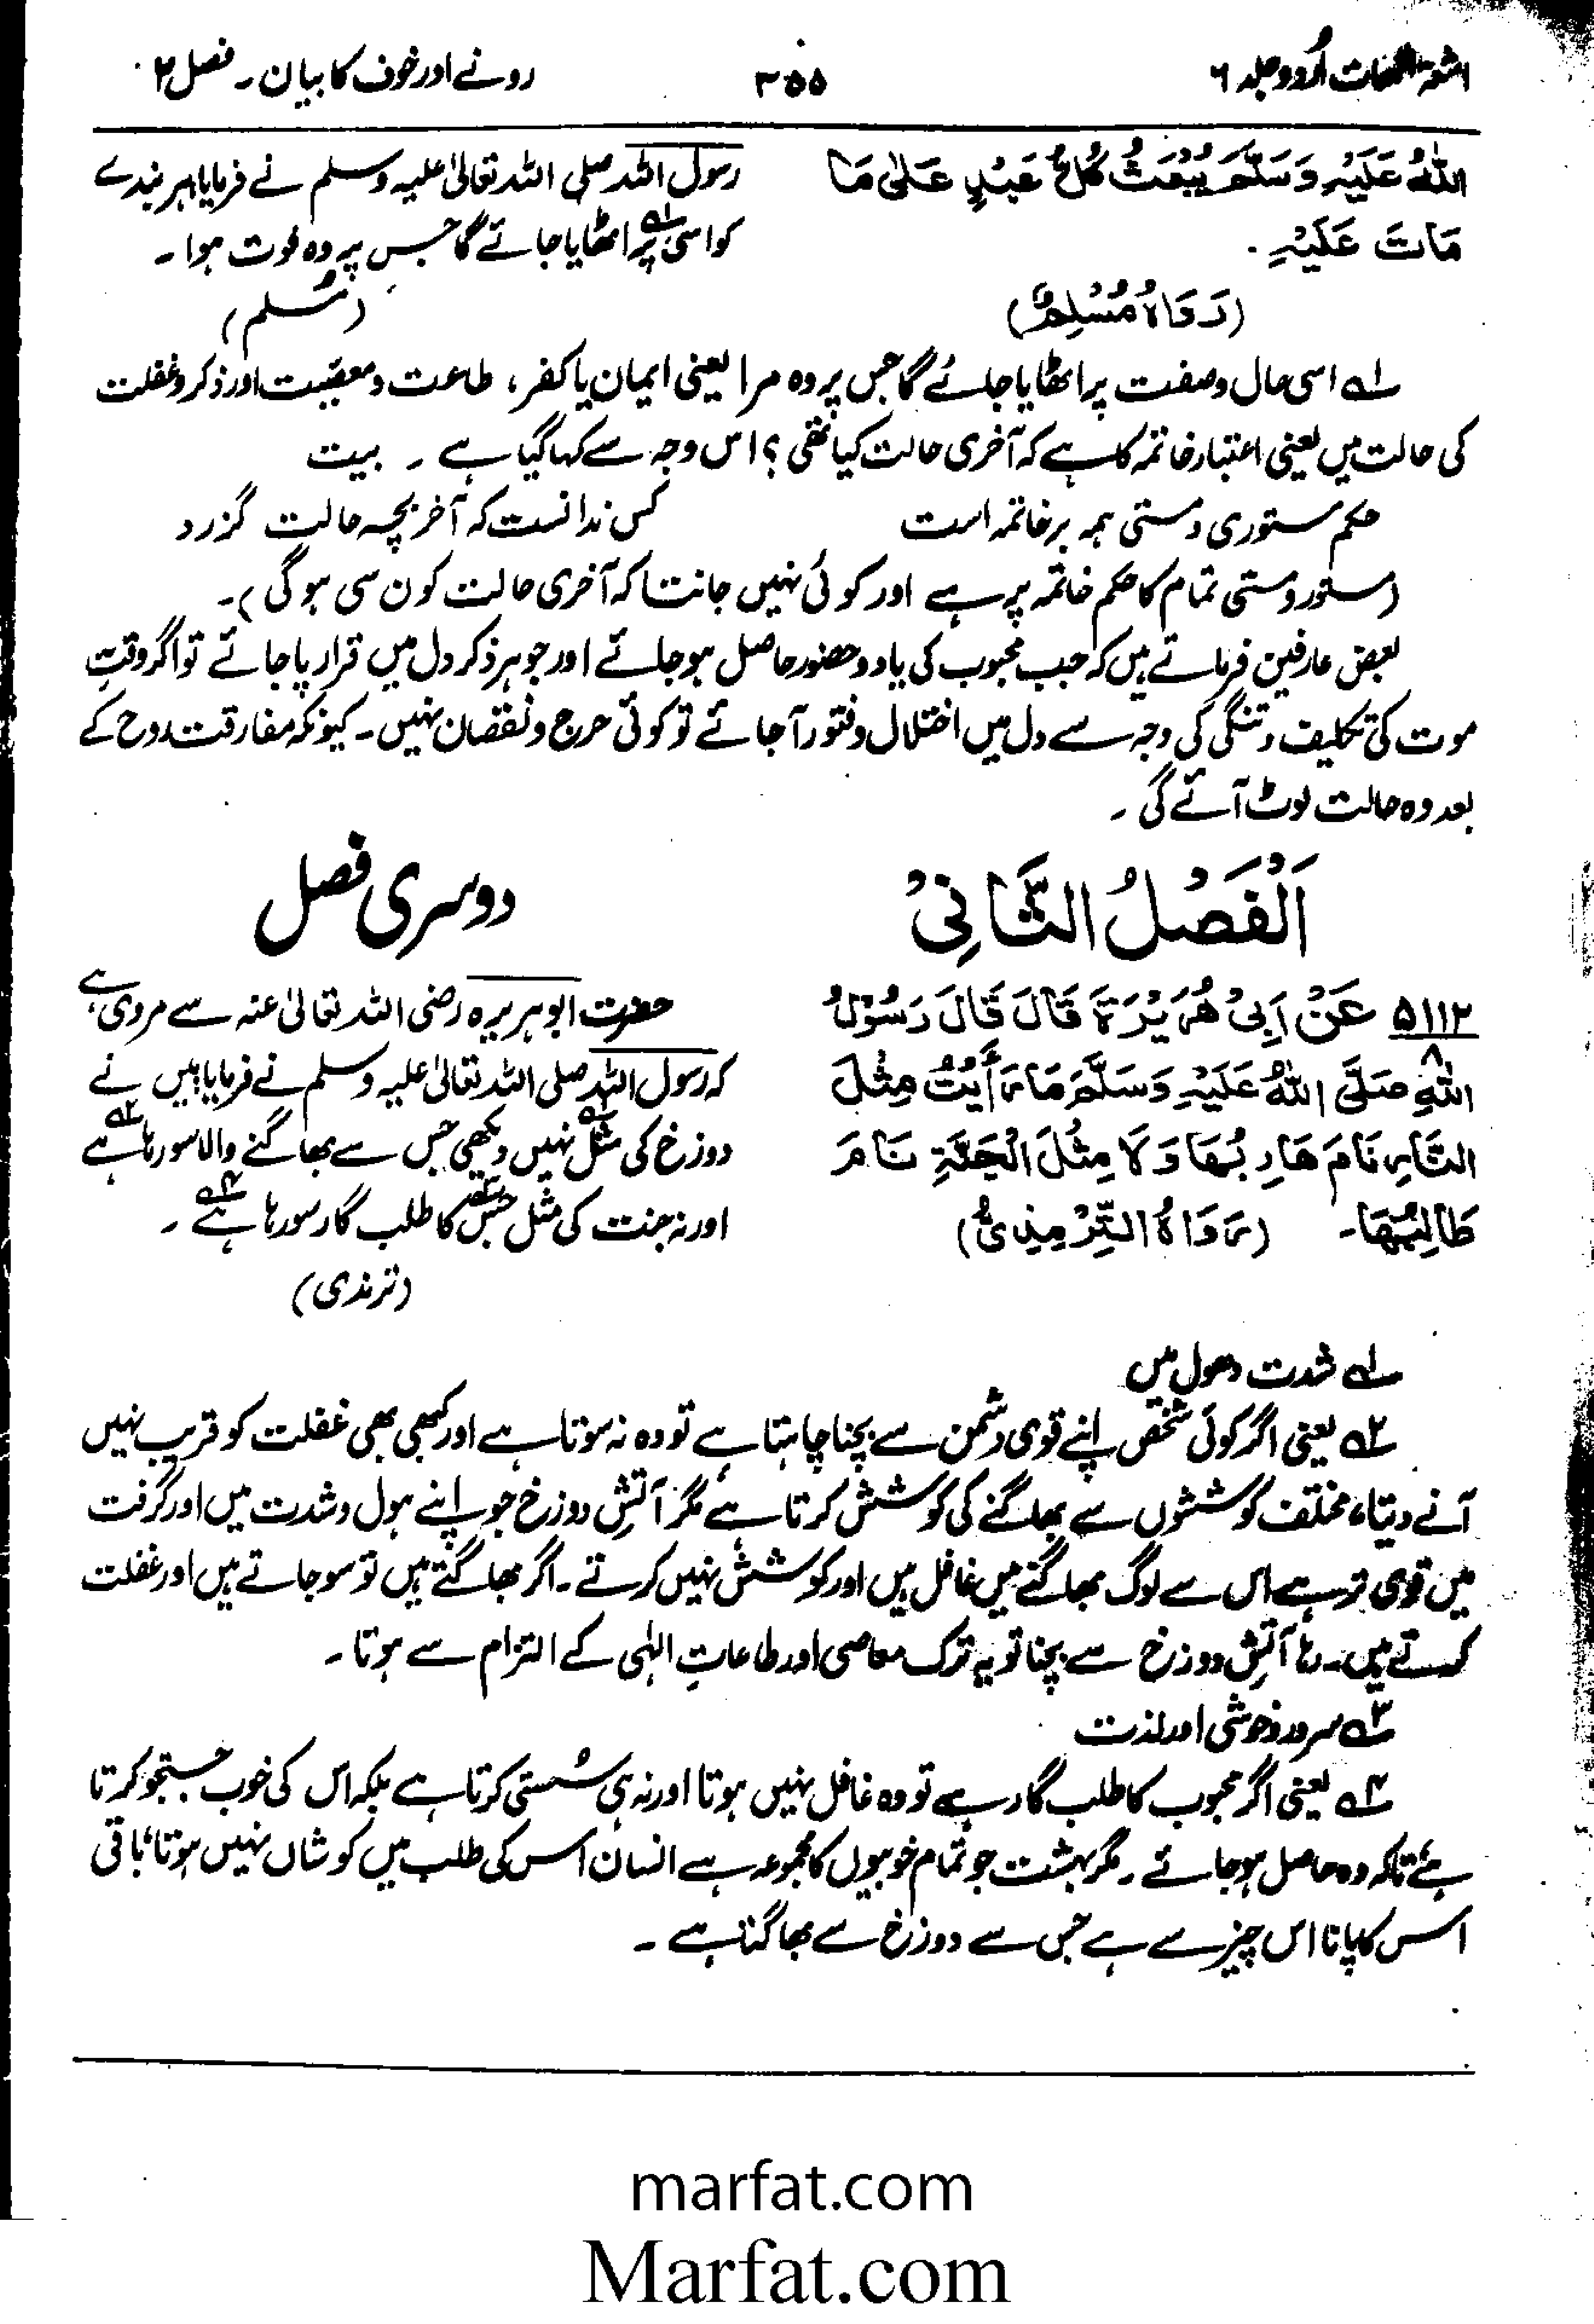 اشعۃ اللمعات اُردو جلد ۶
۳۵۵
رونے اور خوف کا بیان۔ فصل ۲
اللّٰہُ عَلَیْہِ وَسَلَّمَ یُبْعَثُ کُلُّ عَبْدٍ عَلٰی مَا
مَاتَ عَلَیْہِ۔
(رَوَاہُ مُسْلِمٌ)
رسول اللہ صلی اللہ تعالیٰ علیہ وسلم نے فرمایا ہر بندے
کو اسی پر ۱؎ اٹھایا جائے گا جس پر وہ فوت ہوا۔
(مُسلم)
۱؎ اسی حال و صفت پر اٹھایا جائے گا جس پر وہ مرا یعنی ایمان یا کفر، طاعت و معصیت اور ذکر و غفلت
کی حالت میں یعنی اعتبار خاتمہ کا ہے کہ آخری حالت کیا تھی؟ اس وجہ سے کہا گیا ہے۔ بیت
حکم مستوری و مستی ہمہ بر خاتمہ است
کس ندانست کہ آخر بچہ حالت گزرد
(مستور و مستی تمام کا حکم خاتمہ پر ہے اور کوئی نہیں جانتا کہ آخری حالت کون سی ہوگی)۔
بعض عارفین فرماتے ہیں کہ جب محبوب کی یاد و حضور حاصل ہو جائے اور جوہر ذکر دل میں قرار پا جائے تو اگر وقتِ
موت کی تکلیف و تنگی کی وجہ سے دل میں اختلال و فتور آ جائے تو کوئی حرج و نقصان نہیں۔ کیونکہ مفارقت روح کے
بعد وہ حالت لوٹ آئے گی۔
اَلْفَصْلُ الثَّانِیْ
دوسری فصل
۵۱۱۲ عَنْ اَبِیْ ھُرَیْرَۃَ قَالَ قَالَ رَسُوْلُ
۸
اللّٰہِ صَلَّی اللّٰہُ عَلَیْہِ وَسَلَّمَ مَا رَأَیْتُ مِثْلَ
النَّارِ نَامَ ھَارِبُھَا وَلَا مِثْلَ الْجَنَّۃِ نَامَ
طَالِبُھَا۔ (رَوَاہُ التِّرْمِذِیُّ)
حضرت ابوہریرہ رضی اللہ تعالیٰ عنہ سے مروی ہے
کہ رسول اللہ صلی اللہ تعالیٰ علیہ وسلم نے فرمایا میں نے
دوزخ کی مثل ۱؎ نہیں دیکھی جس سے بھاگنے والا سو رہا ہے ۲؎
اور نہ جنت کی مثل ۳؎ جس کا طلب گار سو رہا ہے ۴؎۔
(ترمذی)
۱؎ شدت و ہول میں
۲؎ یعنی اگر کوئی شخص اپنے قوی دشمن سے بچنا چاہتا ہے تو وہ نہ سوتا ہے اور کبھی بھی غفلت کو قریب نہیں
آنے دیتا، مختلف کوششوں سے بھاگنے کی کوشش کرتا ہے مگر آتشِ دوزخ جو اپنے ہول و شدت میں اور گرفت
میں قوی تر ہے اس سے لوگ بھاگتے میں غافل ہیں اور کوشش نہیں کرتے۔ اگر بھاگتے ہیں تو سو جاتے ہیں اور غفلت
کرتے ہیں۔ رہا آتشِ دوزخ سے بچنا تو یہ ترک معاصی اور طاعاتِ الہٰی کے التزام سے ہوتا۔
۳؎ سرور و خوشی اور لذت
۴؎ یعنی اگر محبوب کا طلب گار ہے تو وہ غافل نہیں ہوتا اور نہ ہی سُستی کرتا ہے بلکہ اس کی خوب جستجو کرتا
ہے تاکہ وہ حاصل ہو جائے۔ مگر بہشت جو تمام خوبیوں کا مجموعہ ہے انسان اس کی طلب میں کوشاں نہیں ہوتا، باقی
اس کا پانا اس چیز سے ہے جس سے دوزخ سے بھاگنا ہے۔
marfat.com
Marfat.com